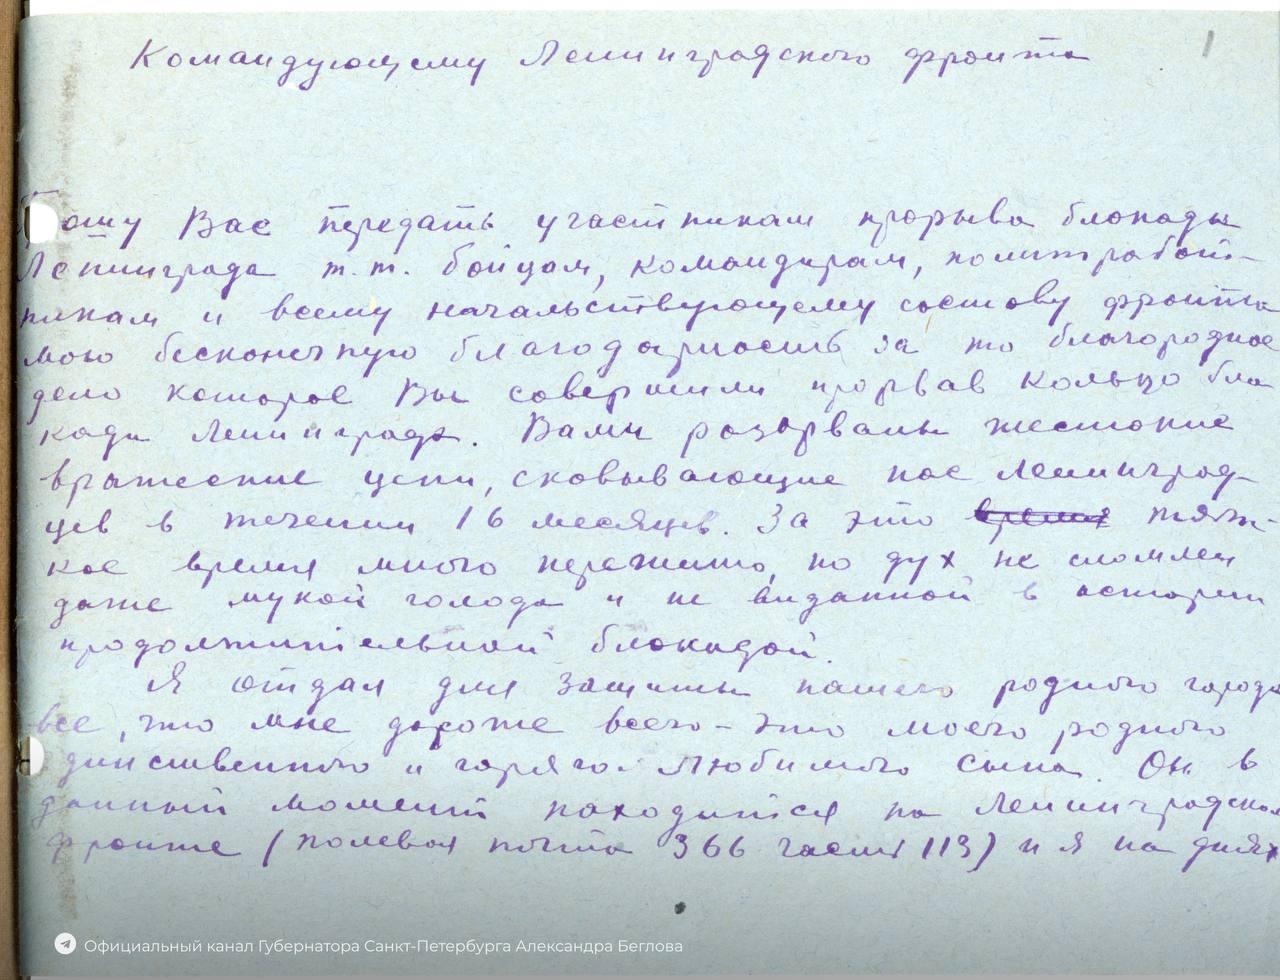 1
Командующему Ленинградского фронта
Прошу Вас передать участникам прорыва блокады
Ленинграда т.т. бойцам, командирам, политработ-
никам и всему начальствующему составу фронта
мою бесконечную благодарность за то благородное
дело которое Вы совершили прорвав кольцо бло
кады Ленинграда. Вами разорваны жестокие
вражеские цепи, сковывающие нас Ленинград-
цев в течении 16 месяцев. За это время тяж-
кое время много пережито, но дух не сломлен
даже мукой голода и не виданной в истории
продолжительной блокадой.
Я отдал для защиты нашего родного города
все, что мне дороже всего – это моего родного
единственного и горячо любимого сына. Он в
данный момент находится на Ленинградском
фронте (полевая почта 366 часть 113) и я на днях
Официальный канал Губернатора Санкт-Петербурга Александра Беглова